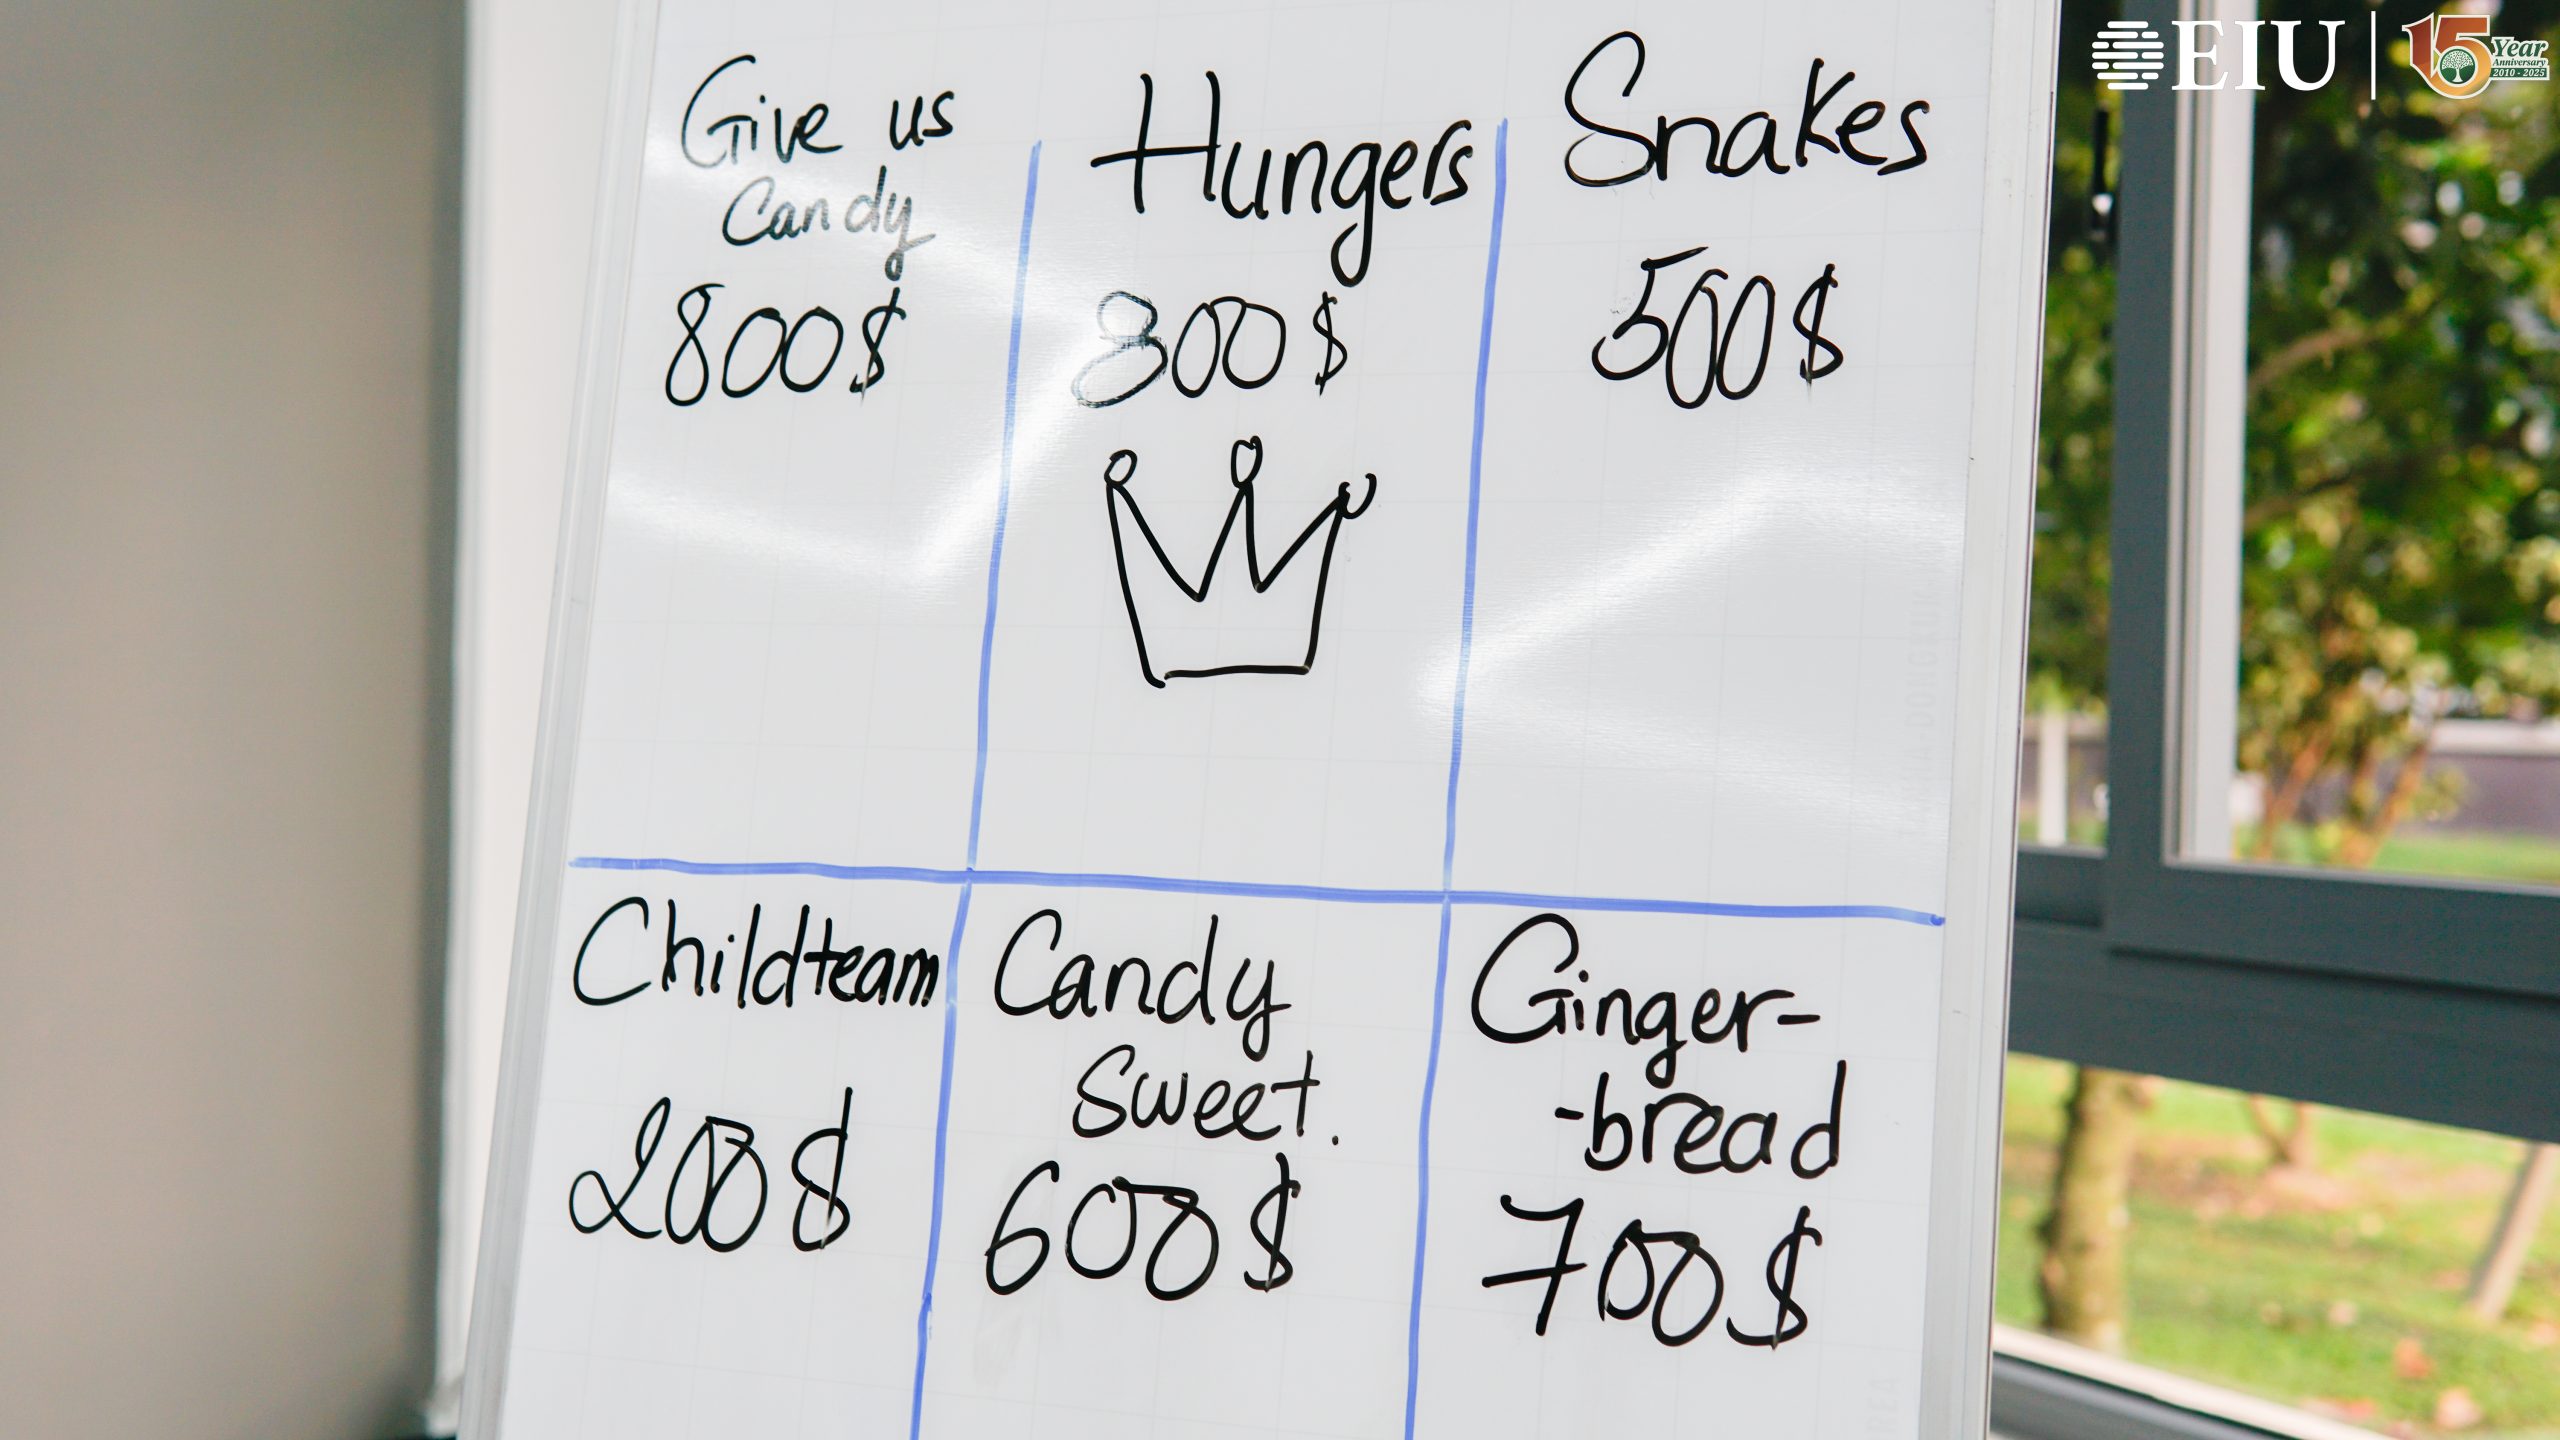 Give us
Candy
800$
Hungers
800$
Snakes
500$
Childteam
200$
Candy
Sweet.
600$
Ginger-
-bread
700$
EIU
15 Year
Anniversary
2010 - 2025